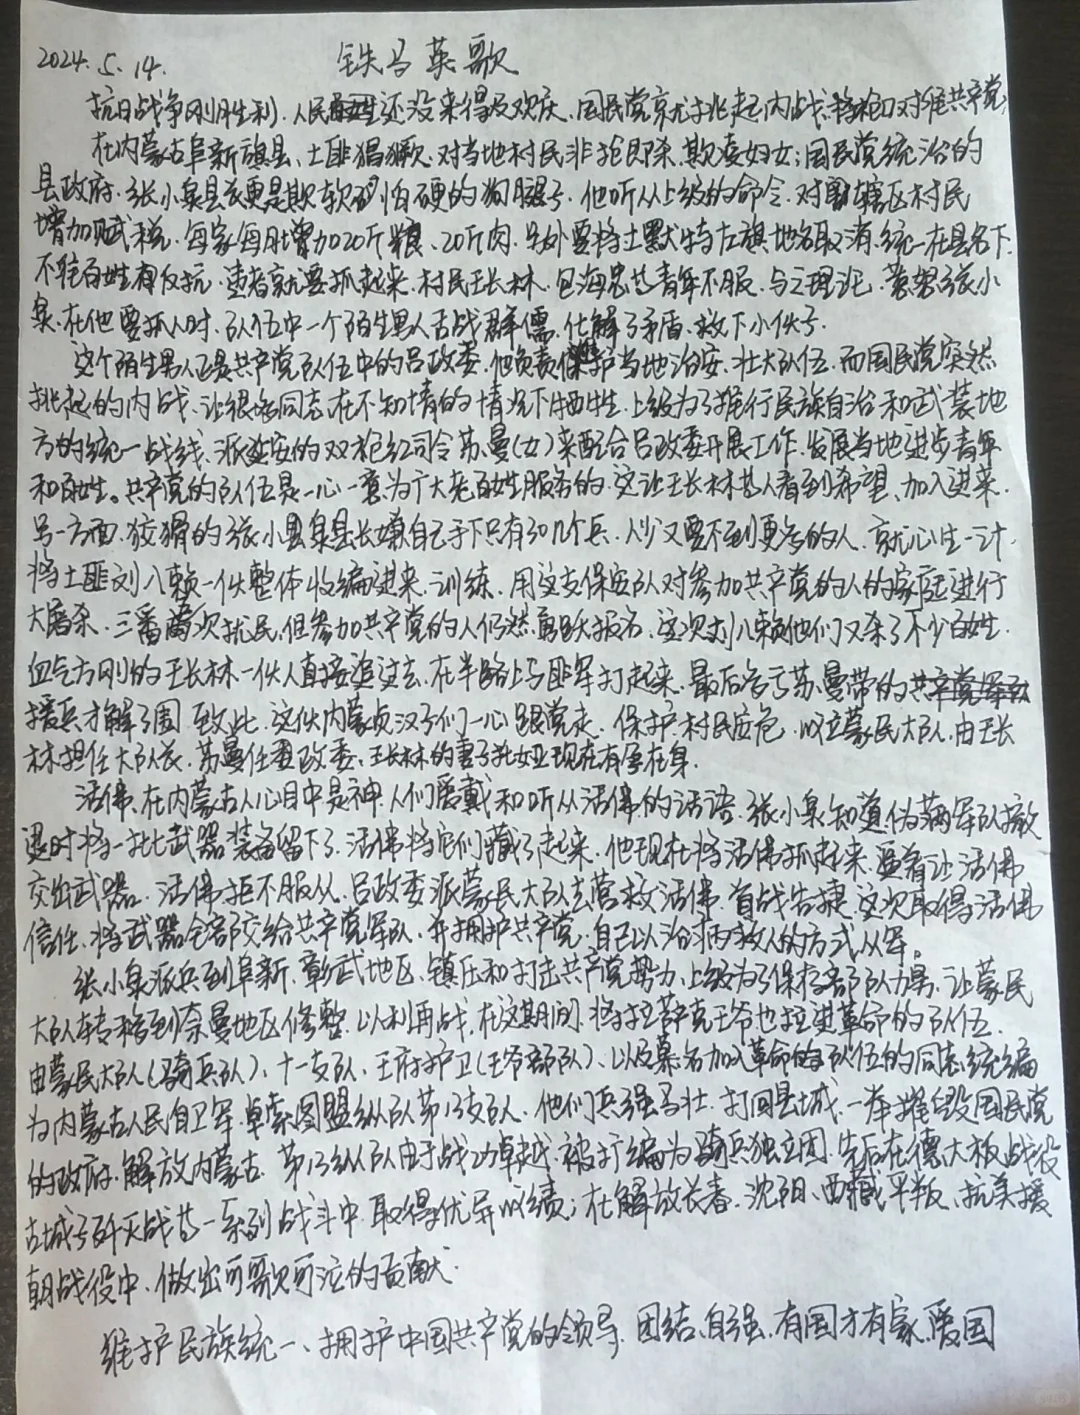 2024.5.14. 铁马英歌
抗日战争刚胜利.人民还没来得及欢庆、国民党就挑起内战.将枪口对准共产党.
在内蒙古阜新旗县、土匪猖獗.对当地村民非抢即杀.欺凌妇女;国民党统治的
县政府.张小泉县长更是欺软怕硬的狗腿子.他听从上级的命令.对辖区村民
增加赋税.每家每月增加20斤粮、20斤肉.另外要将土默特左旗地名取消.统一在县名下.
不准百姓有反抗.违者就要抓起来.村民王长林.包海忠等青年不服.与之理论.惹怒张小
泉.在他要抓人时.队伍中一个陌生男人舌战群儒.化解了矛盾.救下小伙子.
这个陌生男人正是共产党队伍中的吕政委.他负责保护当地治安.壮大队伍.而国民党突然
挑起的内战.让很多同志在不知情的情况下牺牲.上级为了推行民族自治和武装地
方的统一战线.派延安的双枪红司令苏曼(女)来配合吕政委开展工作.发展当地进步青年
和百姓。共产党的队伍是一心一意为广大老百姓服务的.这让王长林等人看到希望.加入进来.
另一方面.狡猾的张小泉县长嫌自己手下只有30几个兵.人少又要不到更多的人.就心生一计.
将土匪刘八赖一伙整体收编进来.训练.用这支保安队对参加共产党的人的家庭进行
大屠杀.三番两次扰民.但参加共产党的人仍然踊跃报名.这次刘八赖他们又杀了不少百姓.
血气方刚的王长林一伙人直接追过去.在半路上与匪军打起来.最后多亏苏曼带的
援兵才解了围.致此.这伙内蒙贞汉子们一心跟党走.保护村民安危.成立蒙民大队.由王长
林担任大队长.苏曼任政委.王长林的妻子托娅现在有孕在身.
活佛.在内蒙古人心目中是神.人们爱戴和听从活佛的话语.张小泉知道伪满军队撤
退时将一批武器装备留下了.活佛将它们藏了起来.他现在将活佛抓起来.逼着让活佛
交出武器.活佛拒不服从.吕政委派蒙民大队去营救活佛.首战告捷.这次取得活佛
信任.将武器全部交给共产党军队.并拥护共产党.自己以治病救人的方式从军。
张小泉派兵到阜新、彰武地区.镇压和打击共产党势力.上级为了保存部队力量.让蒙民
大队转移到奈曼地区修整.以利再战.在这期间.将扎萨克王爷也拉进革命的队伍.
由蒙民大队(骑兵队)、十一支队、王府护卫(王爷部队)、以及慕名加入革命的队伍的同志统编
为内蒙古人民自卫军.卓索图盟纵队第13支队.他们兵强马壮.打回县城.一举摧毁国民党
的政府.解放内蒙古.第13纵队由于战功卓越.被扩编为骑兵独立团.先后在德大板战役
古城子歼灭战等一系列战斗中.取得优异成绩;在解放长春、沈阳、西藏平叛、抗美援
朝战役中.做出可歌可泣的贡献.
维护民族统一、拥护中国共产党的领导.团结、自强.有国才有家.爱国